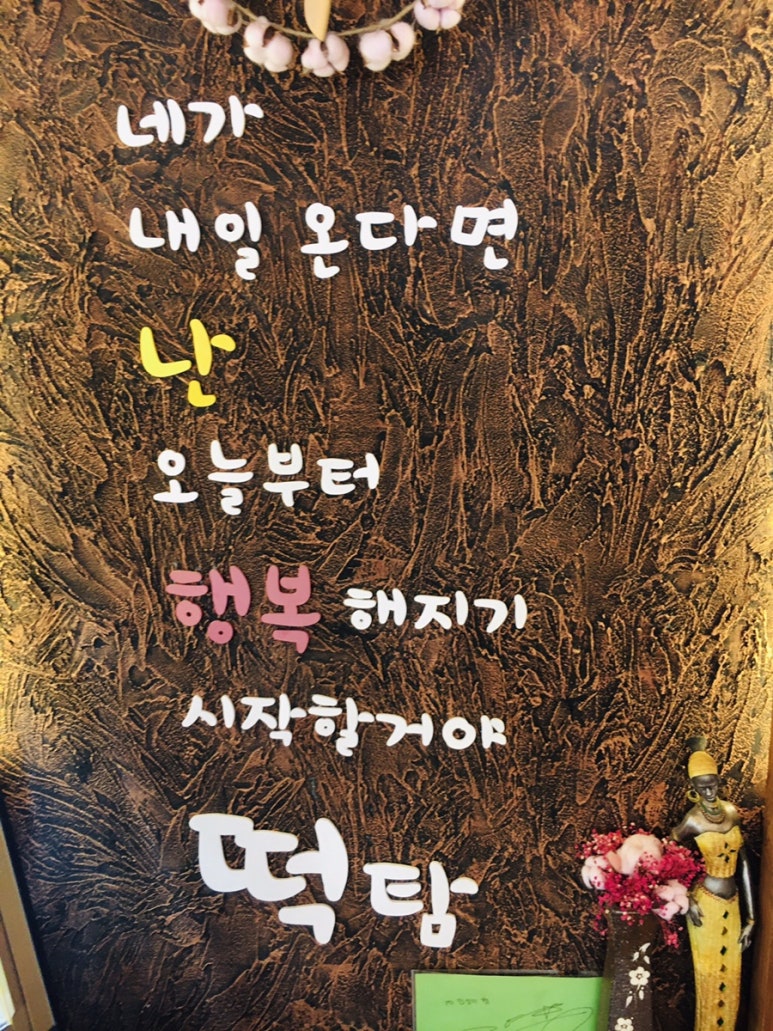 네가
내일 온다면
난
오늘부터
행복해지기
시작할거야
떡탐